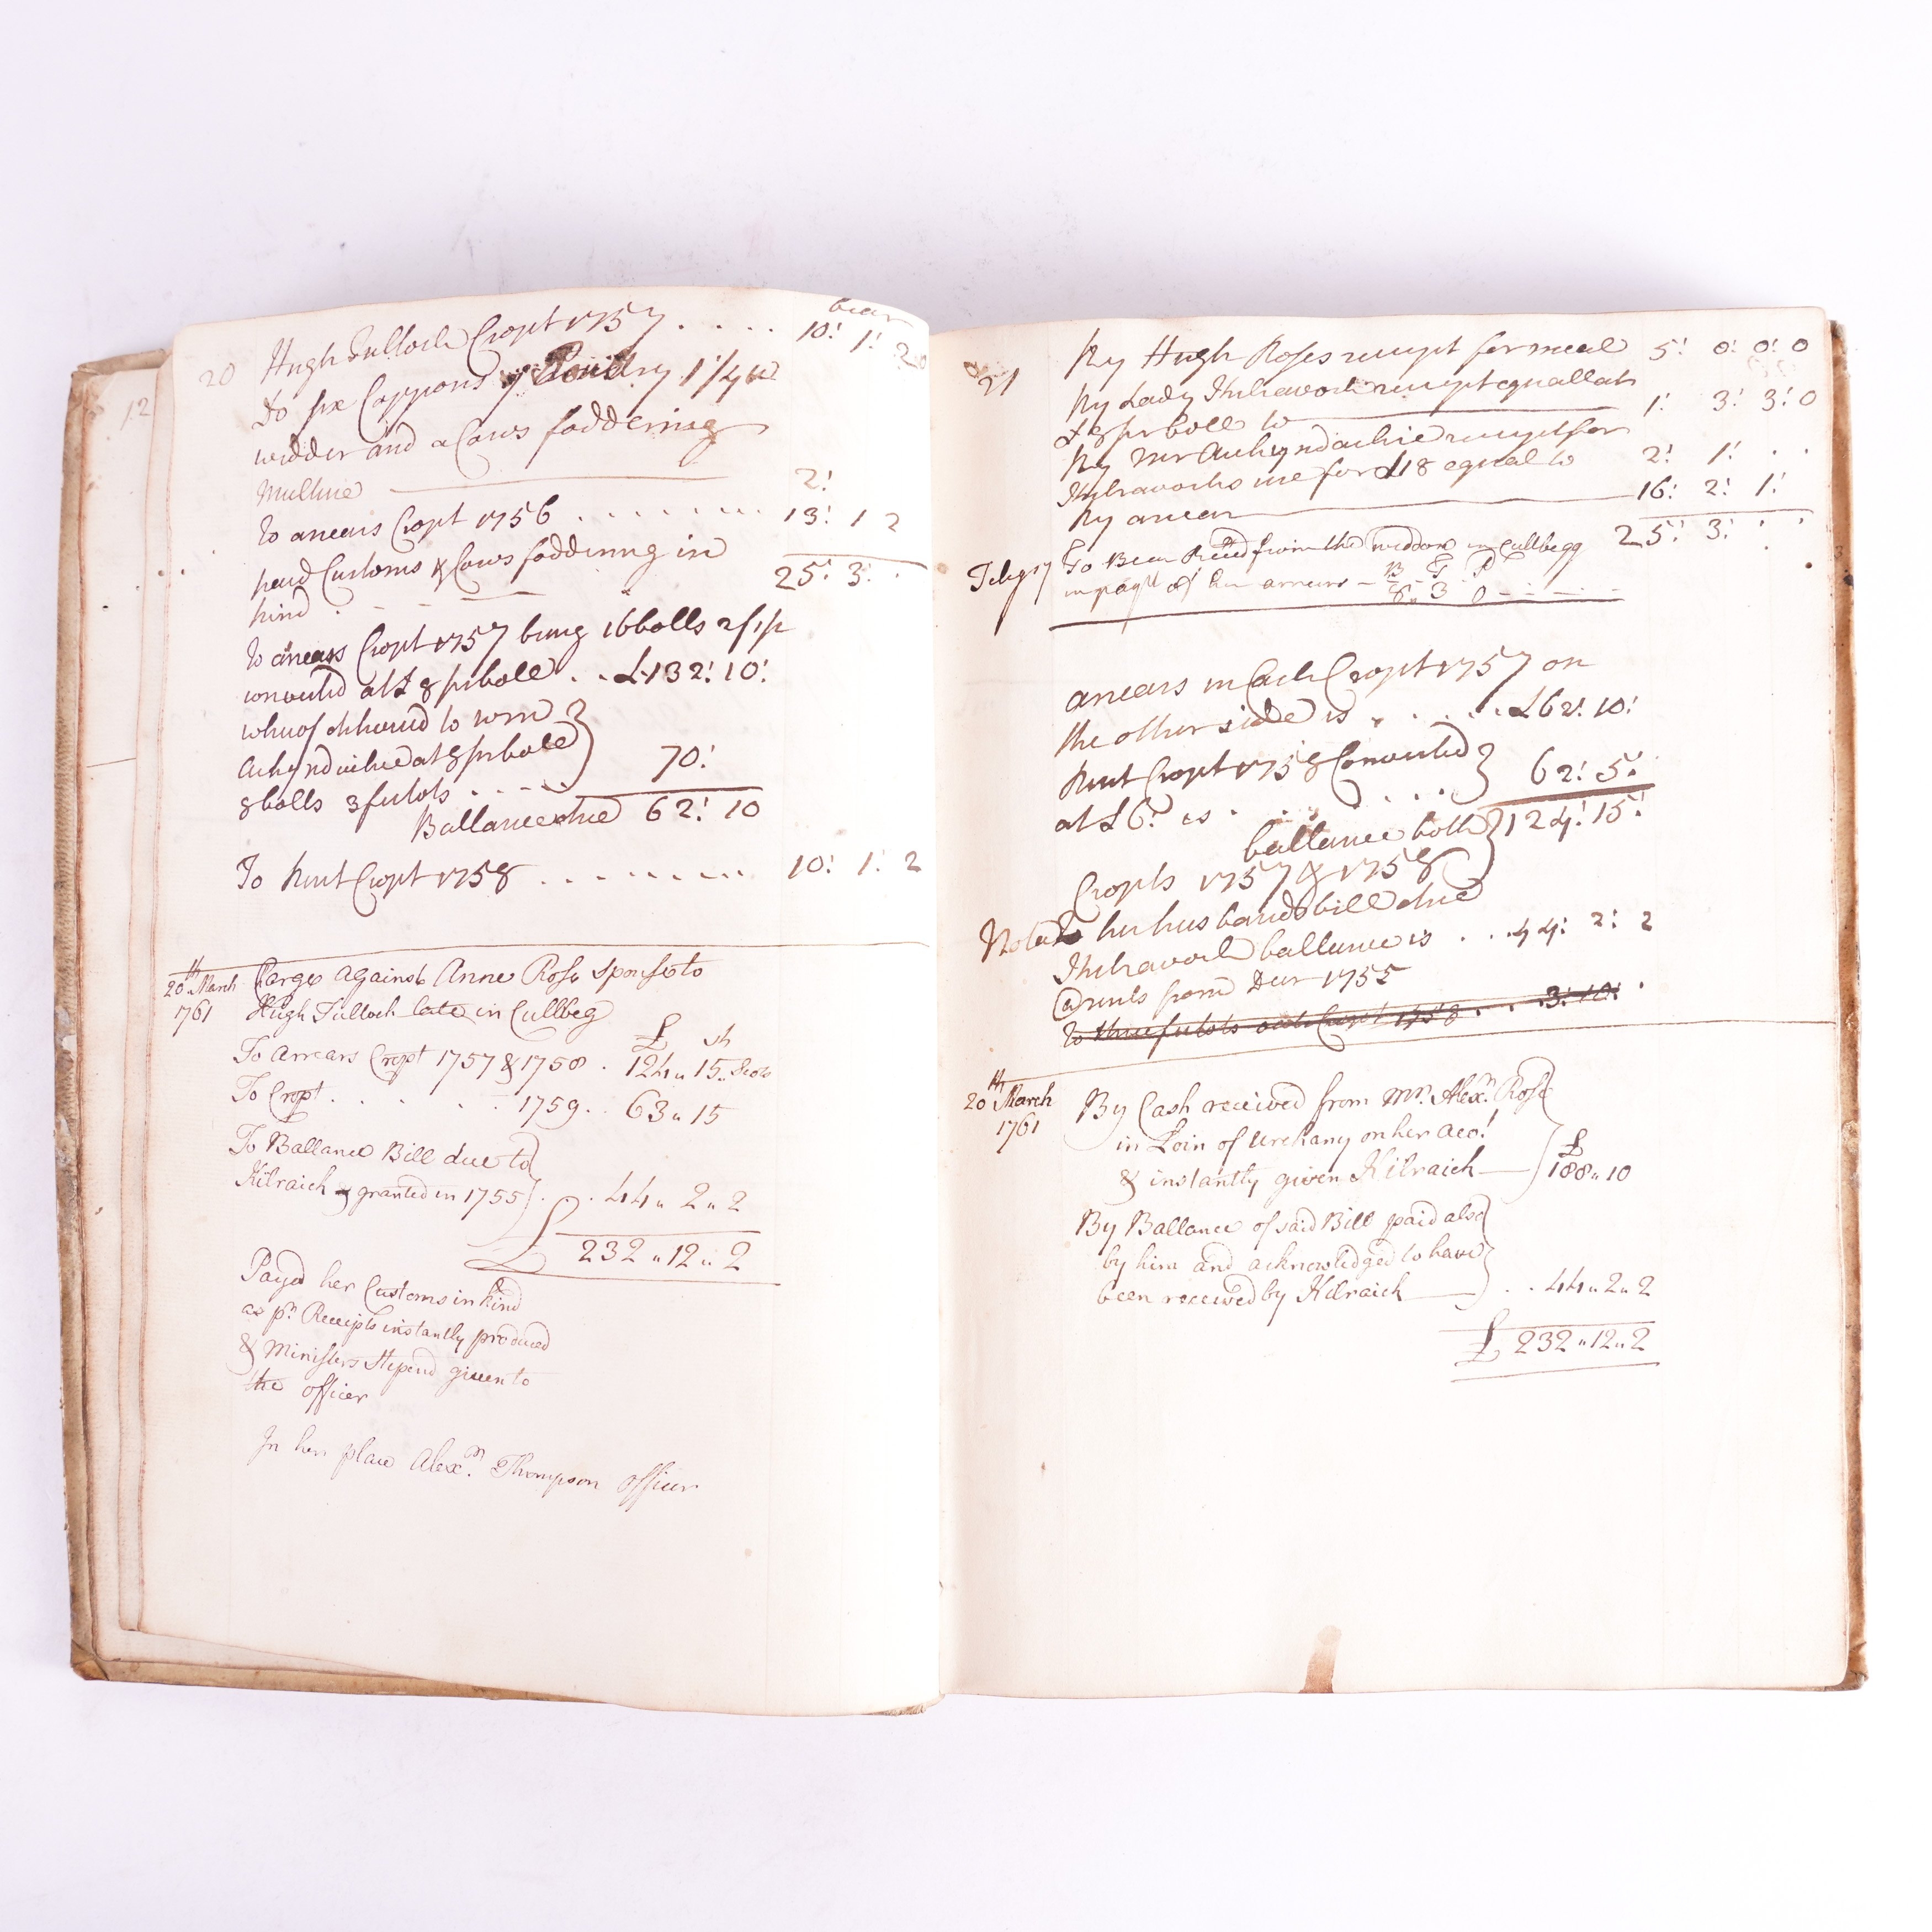 12
bear
20 Hugh Tulloch Cropt 1757 . . . . 10: 1: 2
To six Cappons 7 Poultry 1/4
widder and a Cows foddering
Multure 2:
To arrears Cropt 1756 . . . . . . . . 13: 1 2
payd Customs & Cows foddering in 25: 3: .
kind
To arrears Cropt 1757 being 16 bolls 2f 1p
converted at £8 pr boll . . £132: 10:
whereof
at 8 pr boll 70:
8 bolls 3 firlots . . . .
Ballance due 62: 10
To Rent Cropt 1758 . . . . . . . . 10: 1: 2
20th March Carge against Anne Rose Spouse to
1761 Hugh Tulloch late in Cullbeg
£ sh
To Arrears Cropt 1757 & 1758 . 124 " 15 " Scots
To Cropt . . . . . 1759 . . 63 " 15
To Ballance Bill due to
Kilraick granted in 1755 . . 44 " 2 " 2
£ 232 " 12 " 2
Payd her Customs in kind
as pr Receipts instantly produced
& Ministers Stepend given to
the officer
In her place Alexr. Thompson officer
21 By Hugh Roses receipt for meal 5: 0: 0: 0
By Lady receipt equall at
£8 pr boll to 1: 3: 3: 0
By Mr receipt for
for £18 equal to 2: 1: . .
By arrear 16: 2: 1:
25: 3: . .
To Bear Receed from the widdow in Cullbegg
in paytt of her arrears – B F P
8 " 3 0
arrears in Cash Cropt 1757 on
the other side is . . . . . £62: 10:
Rent Cropt 1758 Converted 62: 5:
at £6: is . . . . .
ballance both 124: 15:
Cropts 1757 & 1758
Nota To her husbands bill due
ballance is . . 44: 2: 2
@rents from Decr 1755
To three firlots Cropt 1758 . . . 3: 10:
20th March By Cash received from Mr. Alexr. Rose
1761 in Loin of Urchany on her acot £
& instantly given Kilraick 188 " 10
By Ballance of said Bill paid also
by him and acknowledged to have
been received by Kilraick . . 44 " 2 " 2
£ 232 " 12 " 2